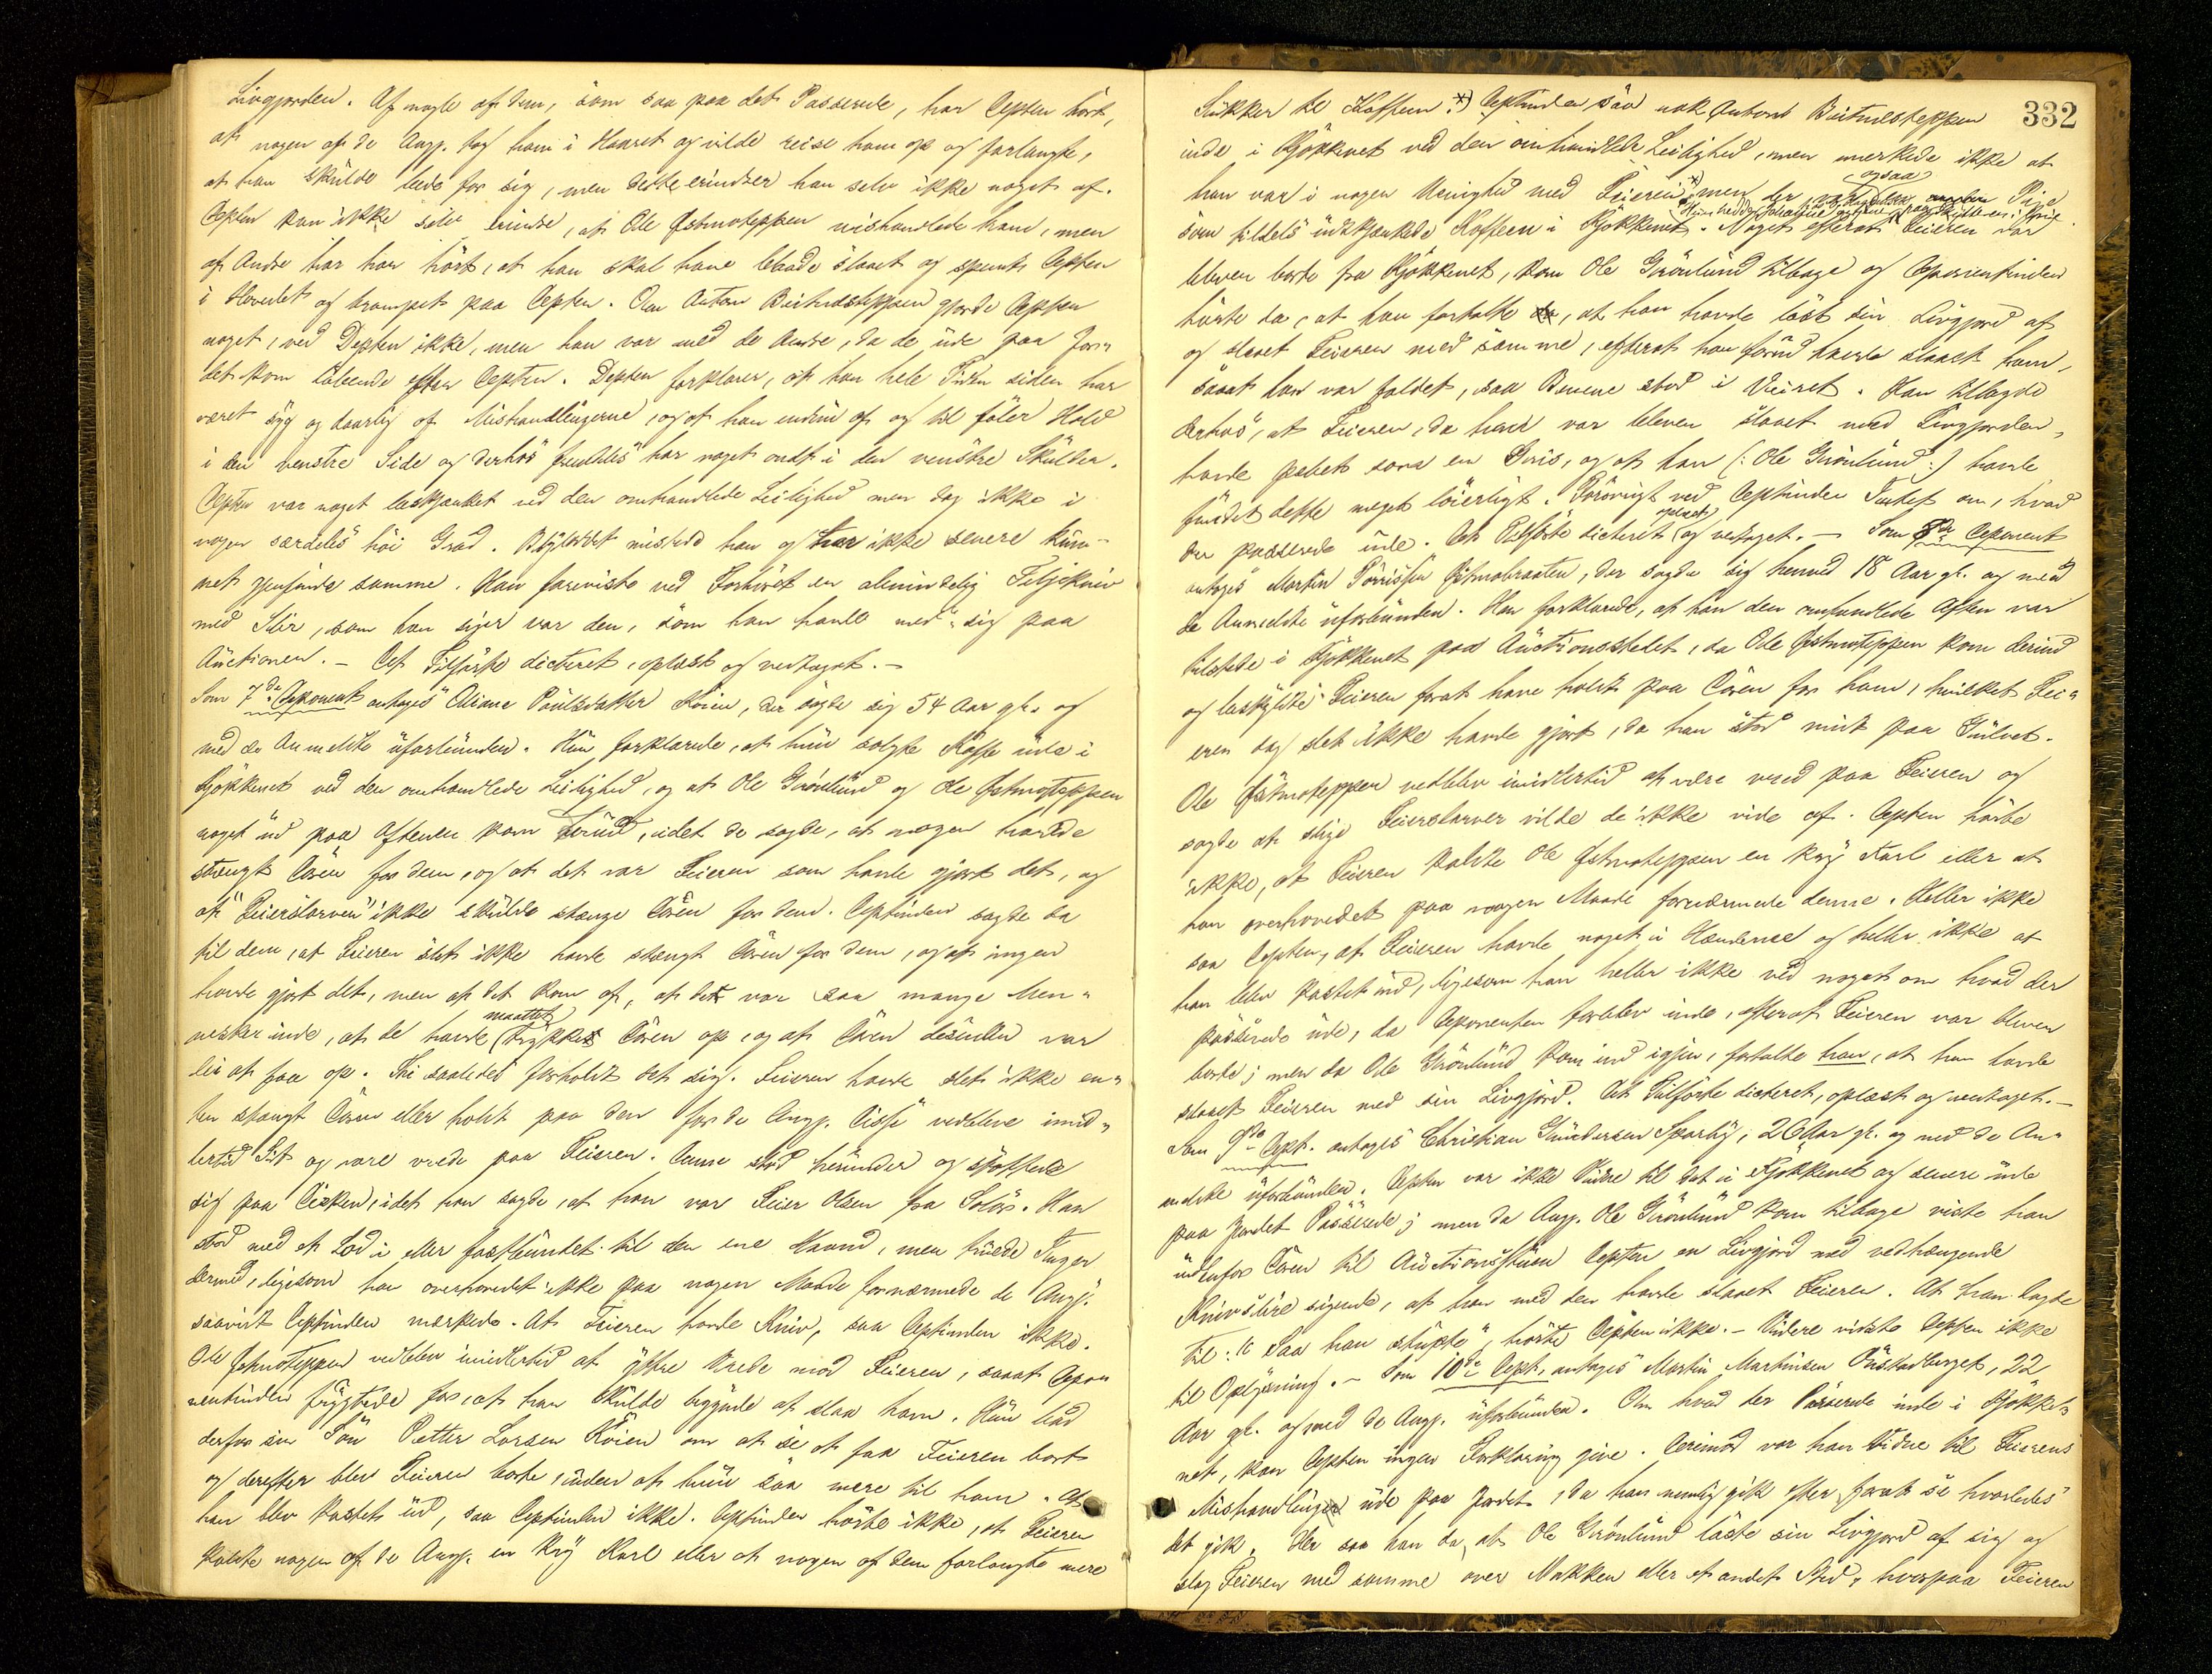 Livgjorden. Af nogle af dem, som saa paa det Passerede, har Depten hørt,
at nogen af de Angj. tog ham i Haaret og vilde reise ham op og forlangte,
at han skulde bede for sig, men dette erindrer han selv ikke noget af.
Depten kan ikke selv erindre, at Ole Østmoteppen mishandlede ham, men
af Andre har han hørt, at han skal have baade slaaet og spændt Depten
i Hovedet og trampet paa Depten. Om Anton Beitnesteppen gjorde Depten
noget, ved Depten ikke, men han var med de Andre, da de ude paa Jor-
det kom løbende efter Depten. Depten forklarer, at han hele Tiden siden har
været syg og daarlig af Mishandlingerne, og at han endnu af og til føler Hold
i den venstre Side og derhos fremdeles har noget ondt i den venstre Skulder.
Depten var noget beskjænket ved den omhandlede Leilighed men dog ikke i
nogen særdeles høi Grad. Blyloddet mistede han og har ikke senere kun-
net gjenfinde samme. Han foreviste ved Forhøret en almindelig Teljekniv
med Slir, som han siger var den, som han havde med sig paa
Auctionen. – Det Tilførte dicteret, oplæst og vedtaget. –
Som 7de Deponent antoges Eliane Poulsdatter Koien, der sagde sig 54 Aar gl. og
med de Anmeldte uforbunden. Hun forklarede, at hun solgte Kaffe inde i
Kjøkkenet ved den omhandlede Leilighed, og at Ole Grønlund og Ole Østmoteppen
noget ud paa Aftenen kom derind, idet de sagde, at nogen havde
stængt Døren for dem, og at det var Feieren som havde gjort det, og
at "Feierlarven" ikke skulde stænge Døren for dem. Deptinden sagde da
til dem, at Feieren slet ikke havde stængt Døren for dem, og at ingen
havde gjort det, men at det kom af, at der var saa mange Men-
nesker inde, at de havde maattet trykke Døren op, og at Døren desuden var
lei at faa op. Thi saaledes forholdt det sig. Feieren havde slet ikke en-
ten stængt Døren eller holdt paa den for de Angj. Disse vedbleve imid-
lertid at være vrede paa Feieren. Denne stod herunder og støttede
sig paa Disken, idet han sagde, at han var Feier Olsen fra Solør. Han
stod med et Lod i eller fastbundet til den ene Haand, men truede Ingen
dermed, ligesom han overhovedet ikke paa nogen Maade fornærmede de Angj.
saavidt Deptinden mærkede. At Feieren havde Kniv, saa Deptinden ikke.
Ole Østmoteppen vedblev imidlertid at yttre Vrede mod Feieren, saaat Depo-
nentinden frygtede for, at han skulde begynde at slaa ham. Hun bad
derfor sin Søn Petter Larsen Koien om at se at faa Feieren bort
og derefter blev Feieren borte, uden at hun saa mere til ham. At
han blev kastet ud, saa Deptinden ikke. Deptinden hørte ikke, at Feieren
kaldte nogen af de Angj. en kry Karl eller at nogen af dem forlangte mere
332
Sukker til Kaffeen. *) Deptinden saa nok Anton Beitnesteppen
inde i Kjøkkenet ved den omhandlede Leilighed, men mærkede ikke at
han var i nogen Uenighed med Feieren *) men der var ogsaa Pige
som tildels udskjænkede Kaffeen i Kjøkkenet. Noget efterat Feieren var
bleven borte fra Kjøkkenet, kom Ole Grønlund tilbage og Deponentinden
hørte da, at han fortalte, at han havde løst sin Livgjord af
og slaaet Feieren med samme, efterat han forud havde slaaet ham,
saaat han var faldet, saa Benene stod i Veiret. Han tillagde
derhos, at Feieren, da han var bleven slaaet med Livgjorden,
havde peket som en Gris, og at han (: Ole Grønlund :) havde
fundet dette meget løierligt. Forøvrigt ved Deptinden Intet om, hvad
der passerede ude. Det Tilførte dicteret oplæst og vedtaget. – Som 8de Deponent
antoges Martin Torrissen Østmobraaten, der sagde sig henved 18 Aar gl. og med
de Anmeldte uforbunden. Han forklarede, at han den omhandlede Aften var
tilstede i Kjøkkenet paa Auctionsstedet, da Ole Østmoteppen kom derind
og beskyldte Feieren forat have holdt paa Døren for ham, hvilket Fei-
eren dog slet ikke havde gjort, da han stod midt paa Gulvet.
Ole Østmoteppen vedblev imidlertid at være vred paa Feieren og
sagde at slige Feierlarver vilde de ikke vide af. Depten hørte
ikke, at Feieren kaldte Ole Østmoteppen en kry Karl eller at
han overhovedet paa nogen Maade fornærmede denne. Heller ikke
saa Depten, at Feieren havde noget i Hænderne og heller ikke at
han blev kastet ud, ligesom han heller ikke ved noget om hvad der
passerede ude, da Deponenten forblev inde, efterat Feieren var bleven
borte; men da Ole Grønlund kom ind igjen, fortalte han, at han havde
slaaet Feieren med sin Livgjord. Det Tilførte dicteret, oplæst og vedtaget. –
Som 9de Dept. antoges Christian Gundersen Sparby, 26 Aar gl. og med de An-
meldte uforbunden. Depten var ikke Vidne til det i Kjøkkenet og senere ude
paa Jordet Passerede; men da Angj. Ole Grønlund kom tilbage viste han
udenfor Døren til Auctionsstuen Depten en Livgjord med vedhængende
Knivslire sigende, at han med den havde slaaet Feieren. At han lagde
til: "Saa han stupte", hørte Depten ikke. – Videre vidste Depten ikke
til Oplysning. – Som 10de Dept. antoges Martin Martinsen Pustadberget, 22
Aar gl. og med de Angj. uforbunden. Om hvad der Passerede inde i Kjøkke-
net, kan Depten ingen Forklaring give. Derimod var han Vidne til Feierens
Mishandling ude paa Jordet, da han nemlig gik efter forat se hvorledes
det gik. Her saa han da, at Ole Grønlund løste sin Livgjord af sig og
slog Feieren med samme over Nakken eller et andet Sted, hvorpaa Feieren